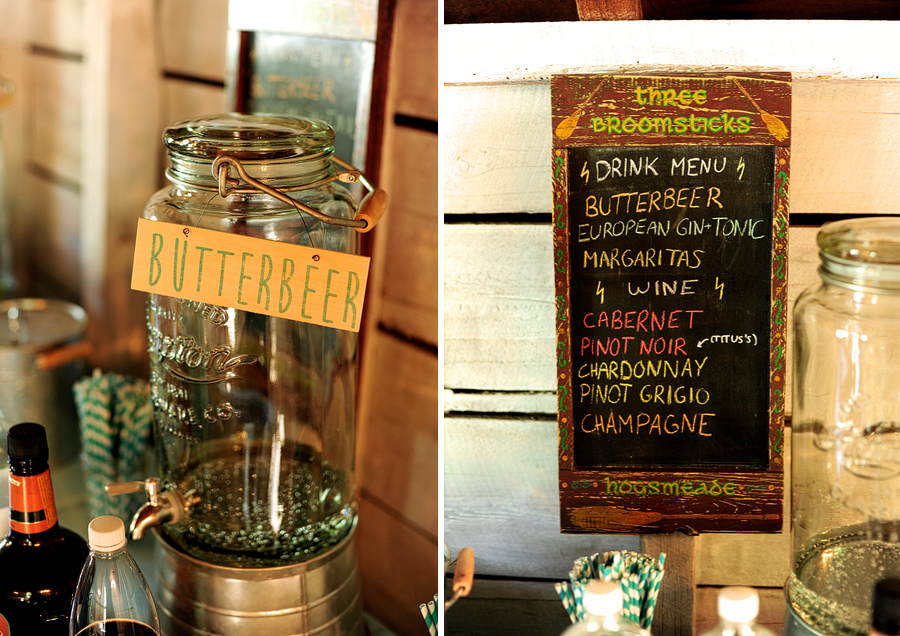 BUTTERBEER
THREE
BROOMSTICKS
DRINK MENU
BUTTERBEER
EUROPEAN GIN+TONIC
MARGARITAS
WINE
CABERNET
PINOT NOIR (TITUS'S)
CHARDONNAY
PINOT GRIGIO
CHAMPAGNE
hogsmeade